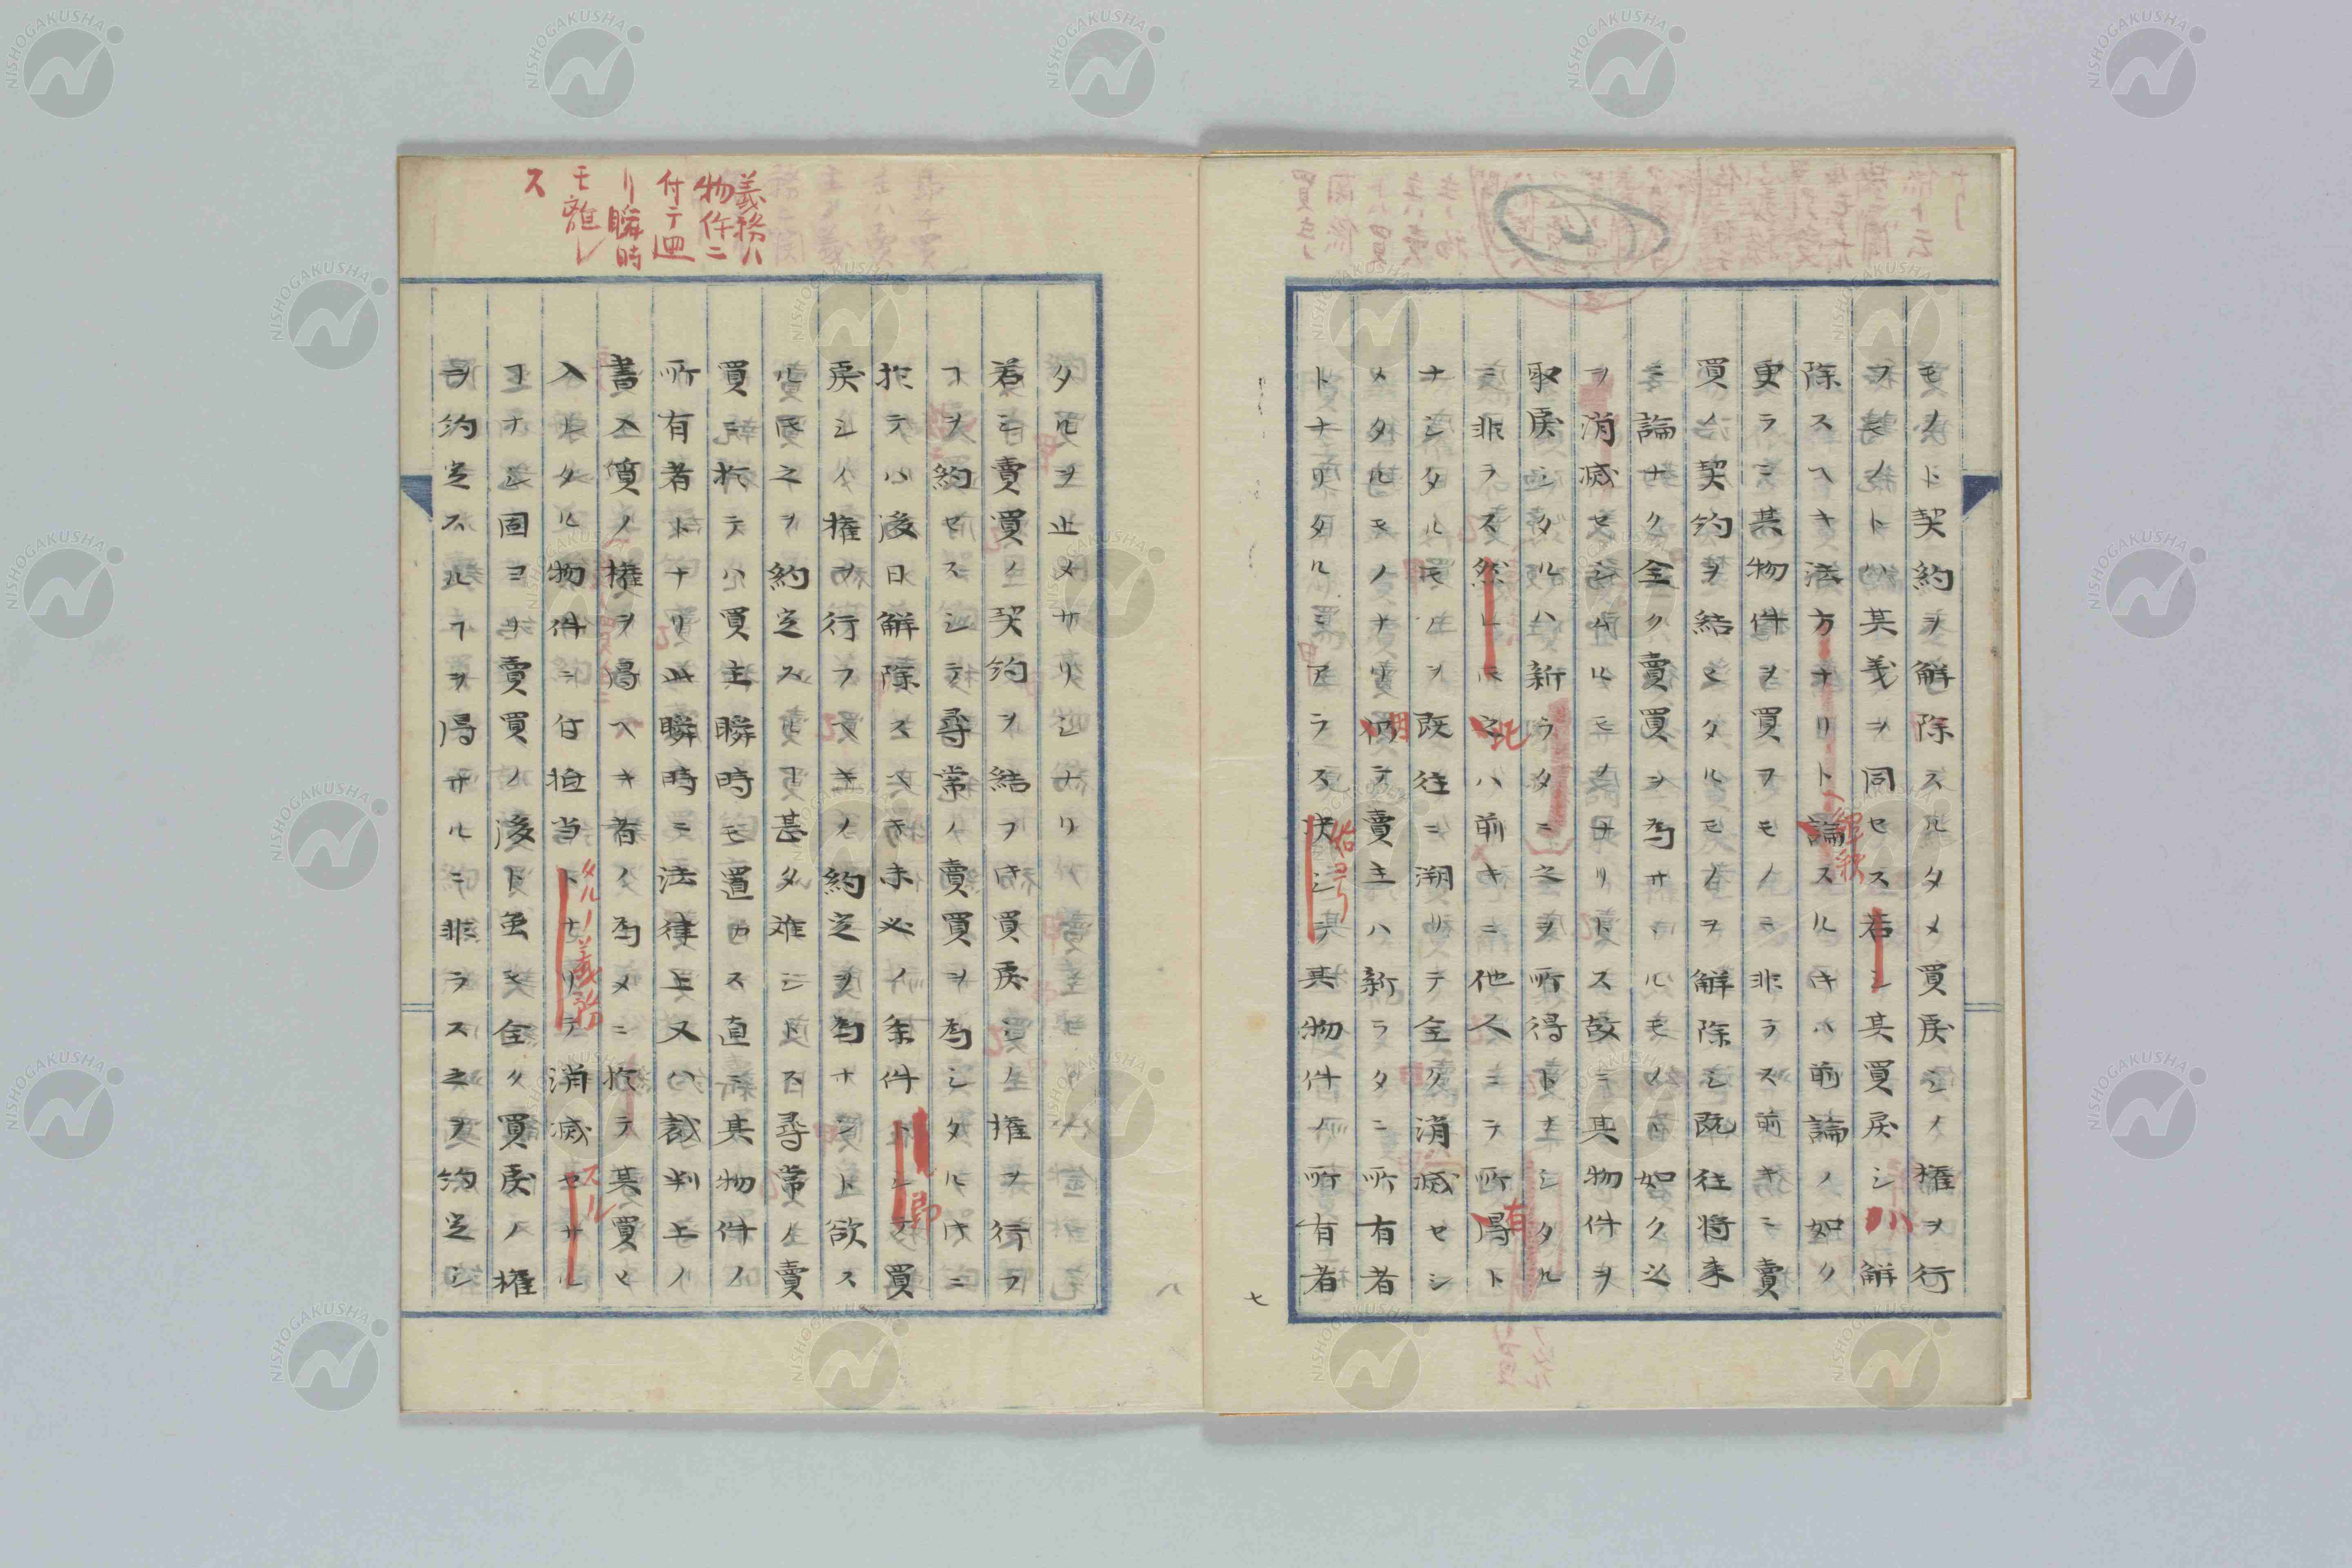 モノト契約ヲ解除スルタメ買戻シノ権ヲ行
フモノトハ其義ヲ同セス若シ其買戻シハ解
除スヘキ法方ナリト論スルキハ前論ノ如ク
解釈
更ラニ其物件ヲ買フモノニ非ラス前キニ賣
買ノ契約ヲ結ヒタルモノヲ解除シ既往将来
ニ論ナク全ク賣買ヲ為サヽルモノヽ如ク之
ヲ消滅セシムルモノナリトス故ニ其物件ヲ
取戻シタルハ新ラタニ之ヲ所得トナシタル
ニ非ラス然レ𪜈之ハ前キニ他人ニテ所得ト
此
有
ナシタルモノヲ既往ニ溯リテ全ク消滅セシ
メタルモノナリ偶テ賣主ハ新ラタニ所有者
トナリタルニアラス決シテ其物件ノ所有者
恰モ
七
タルヲ止メサリシナリ
若シ賣買ノ契約ヲ結フキ買戻シノ権ヲ行フ
ヿヲ約セスシテ尋常ノ賣買ヲ為シタルキニ
於テハ後日解除スヘキ未必ノ条件トシテ買
即
戻シノ権ヲ行フヘキノ約定ヲ為サント欲ス
ル𪜈之ヲ約定スルヿ甚タ難シトス尋常ノ賣
買ニ於テハ買主瞬時モ置カス直ニ其物件ノ
所有者トナリ此瞬時ニ法律上又ハ裁判上ノ
書入質ノ権ヲ得ヘキ者ノ為メニ於テ其買ヒ
入レタル物件ニ付担当トナリテ消滅セサル
タルノ義務
スル
ヿナシ固ヨリ賣買ノ後ト虽モ全ク買戻ノ権
ヲ約定スルヿヲ得サルニ非ラス之ヲ約定シ
八
義務ハ
物件ニ
付テ廻
リ瞬時
モ離レ
ス
NISHOGAKUSHA